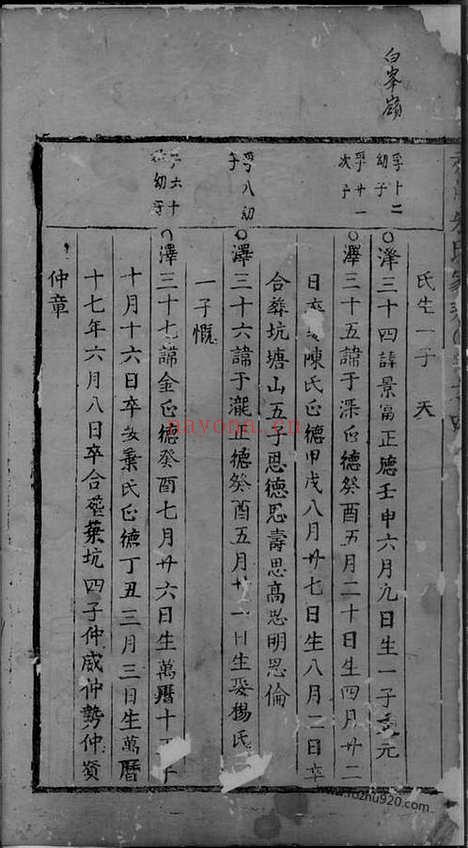 白峯嶺
氏生一子 天
孚十二
幼子
○澤三十四諱景富正德壬申六月九日生一子 元
孚廿一
次子
○澤三十五諱于深正德癸酉五月二十日生四月廿二
日卒 陳氏正德甲戌八月廿七日生八月二日卒
合葬坑塘山五子思德思壽思高思明思倫
孚八幼
子
○澤三十六諱于瀧正德癸酉五月廿一日生娶楊氏
一子慨
六十
幼子
○澤三十七諱金正德癸酉七月廿六日生萬曆十
十月十六日卒娶葉氏正德丁丑三月三日生萬曆
十七年六月八日卒合葬葉坑四子仲威仲勢仲賓
仲章
nayona.cn
www.fozhu920.com